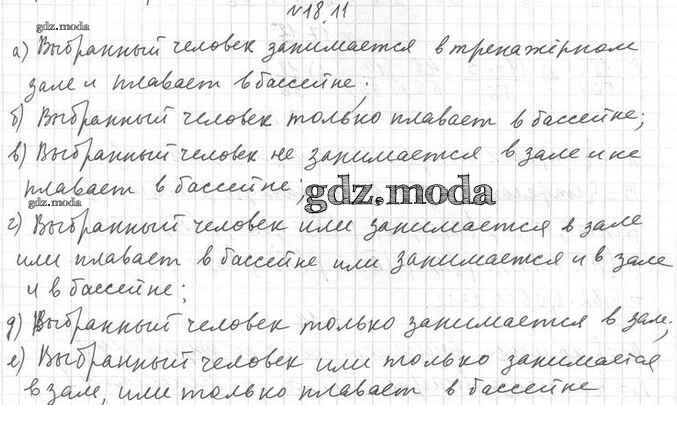 №18.11
gdz.moda
а) Выбранный человек занимается в тренажёрном
зале и плавает в бассейне;
б) Выбранный человек только плавает в бассейне;
в) Выбранный человек не занимается в зале и не
плавает в бассейне;
gdz.moda
gdz.moda
г) Выбранный человек или занимается в зале
или плавает в бассейне или занимается и в зале
и в бассейне;
д) Выбранный человек только занимается в зале;
е) Выбранный человек или только занимается
в зале, или только плавает в бассейне